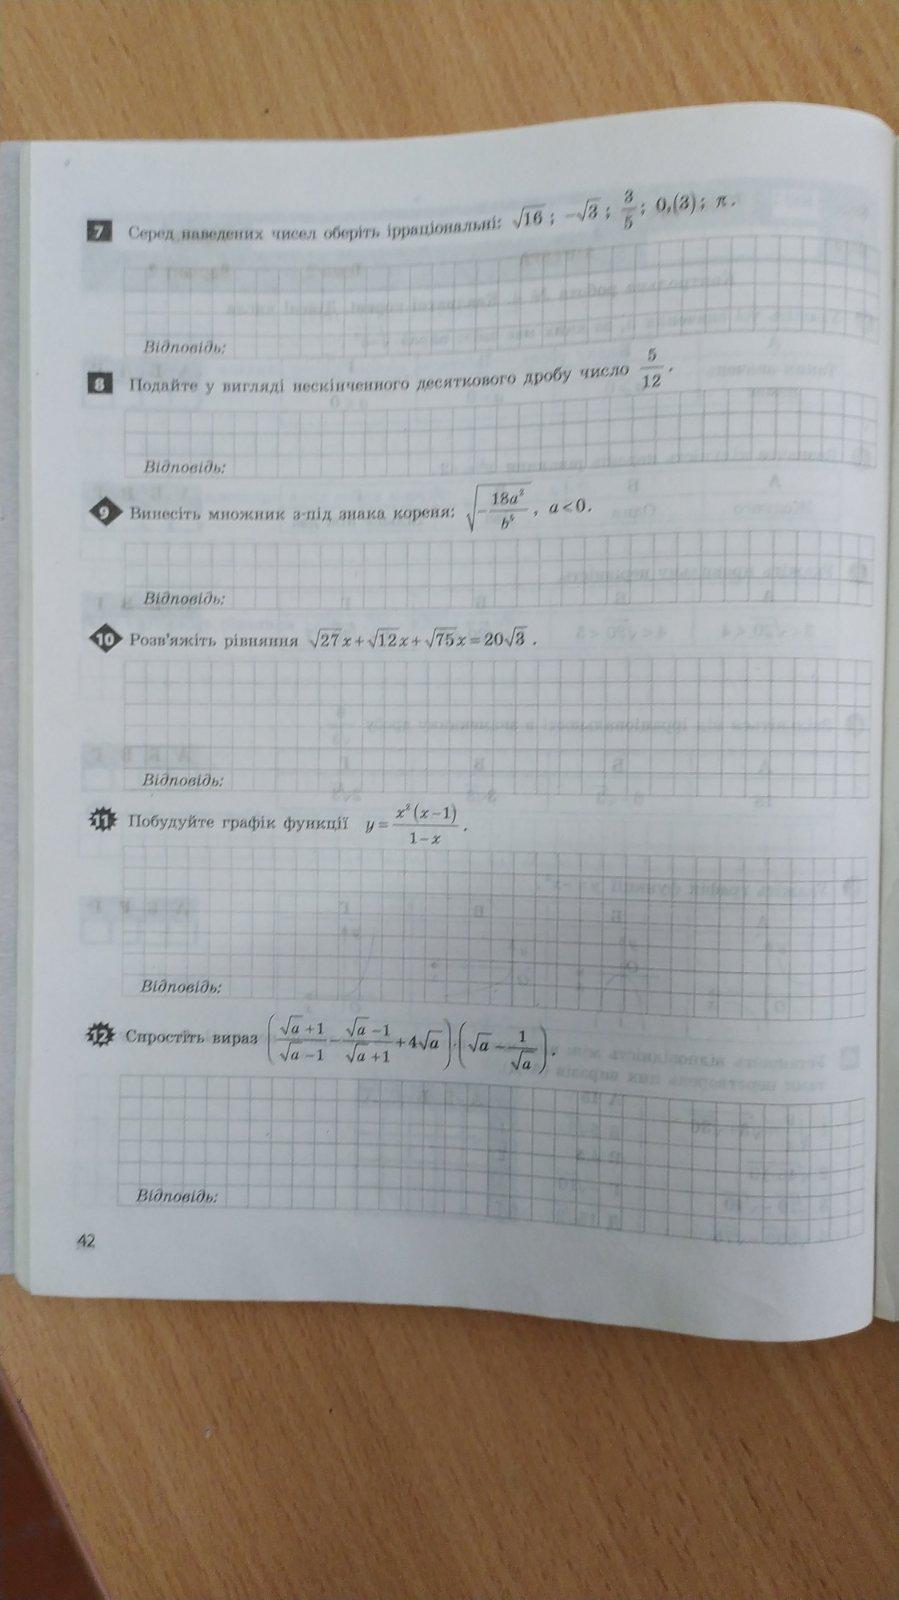 7 Серед наведених чисел оберіть ірраціональні: √16 ; −√3 ; 3/5 ; 0,(3) ; π .
Відповідь:
8 Подайте у вигляді нескінченного десяткового дробу число 5/12 .
Відповідь:
9 Винесіть множник з-під знака кореня: √(−18a²/b⁵) , a < 0.
Відповідь:
10 Розв'яжіть рівняння √27 x + √12 x + √75 x = 20√3 .
Відповідь:
11 Побудуйте графік функції y = x²(x−1)/(1−x) .
Відповідь:
12 Спростіть вираз ((√a +1)/(√a −1) − (√a −1)/(√a +1) + 4√a) · (√a − 1/√a) .
Відповідь:
42